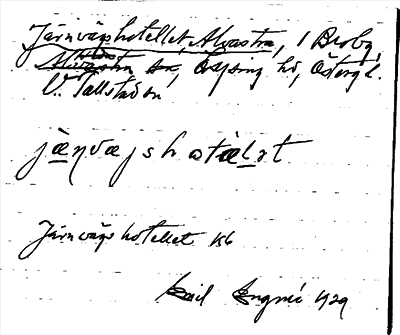 Järnvägshotellet, Alvastra, 1 Broby,
Alvastra sn, Lysings hd, Östergl.
V. Tollstad sn
jænvæjshotælət
Järnvägshotellet kb
Emil Engmé 1929